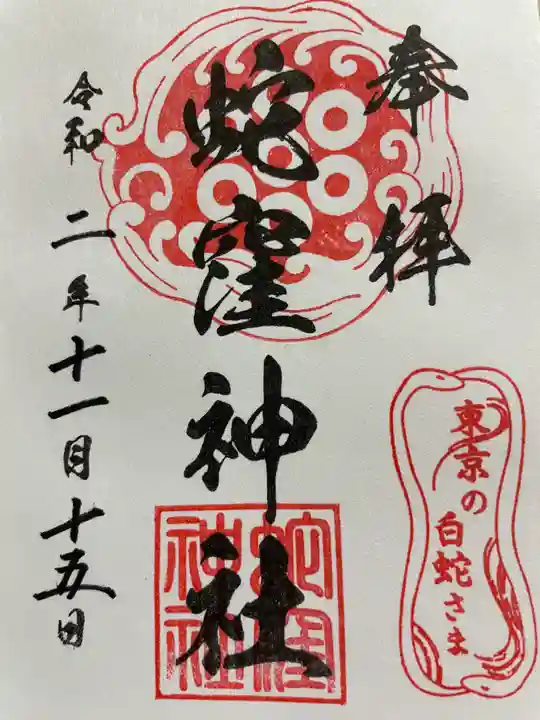 奉拝
蛇窪神社
蛇窪
神社
東京の
白蛇さま
令和二年十一月十五日